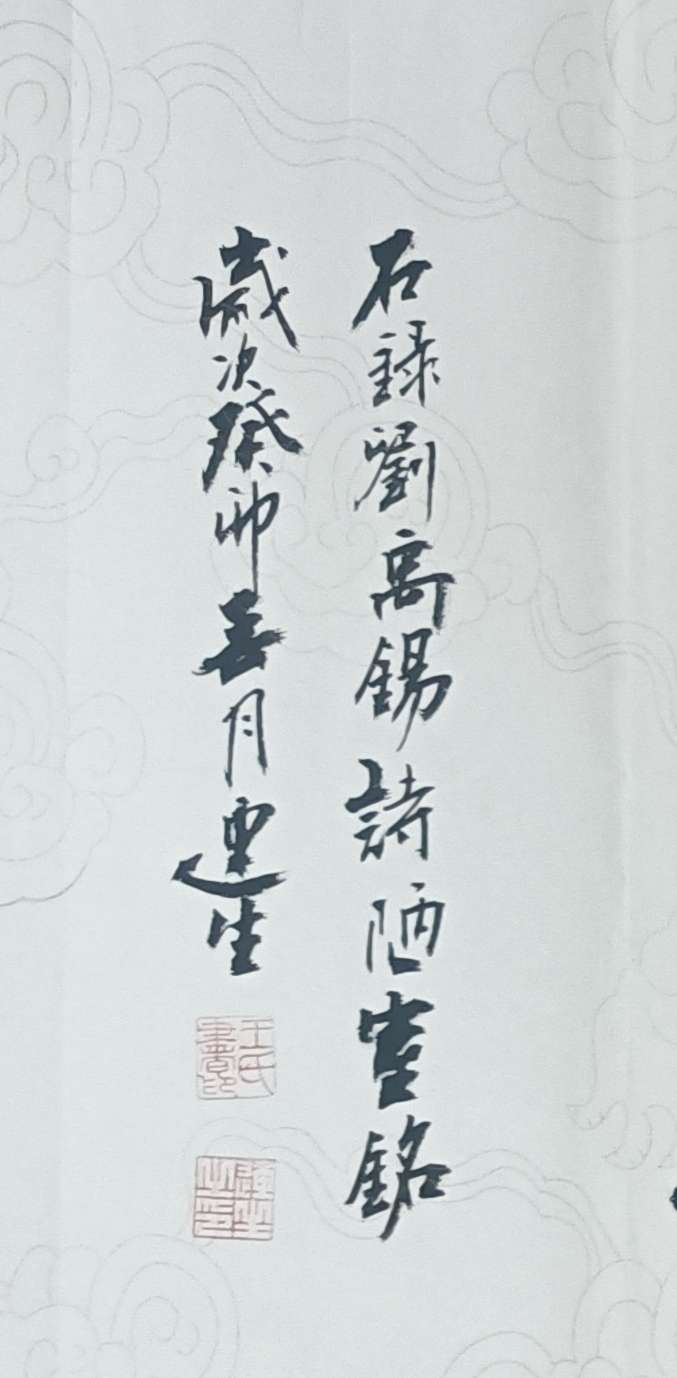 右錄劉禹錫詩陋室銘
歲次癸卯春月連生
王氏書畫印